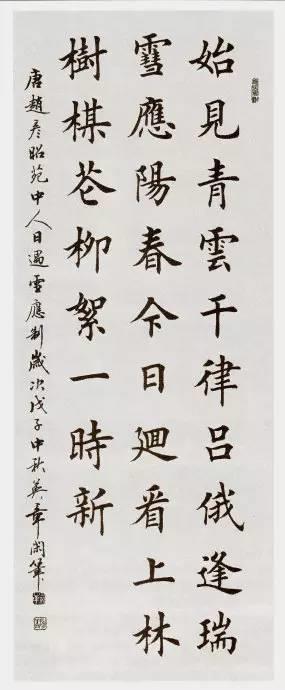 始見青雲干律呂俄逢瑞
雪應陽春今日廻看上林
樹楳花柳絮一時新
唐趙彦昭苑中人日遇雪應制歲次戊子中秋英章閑筆